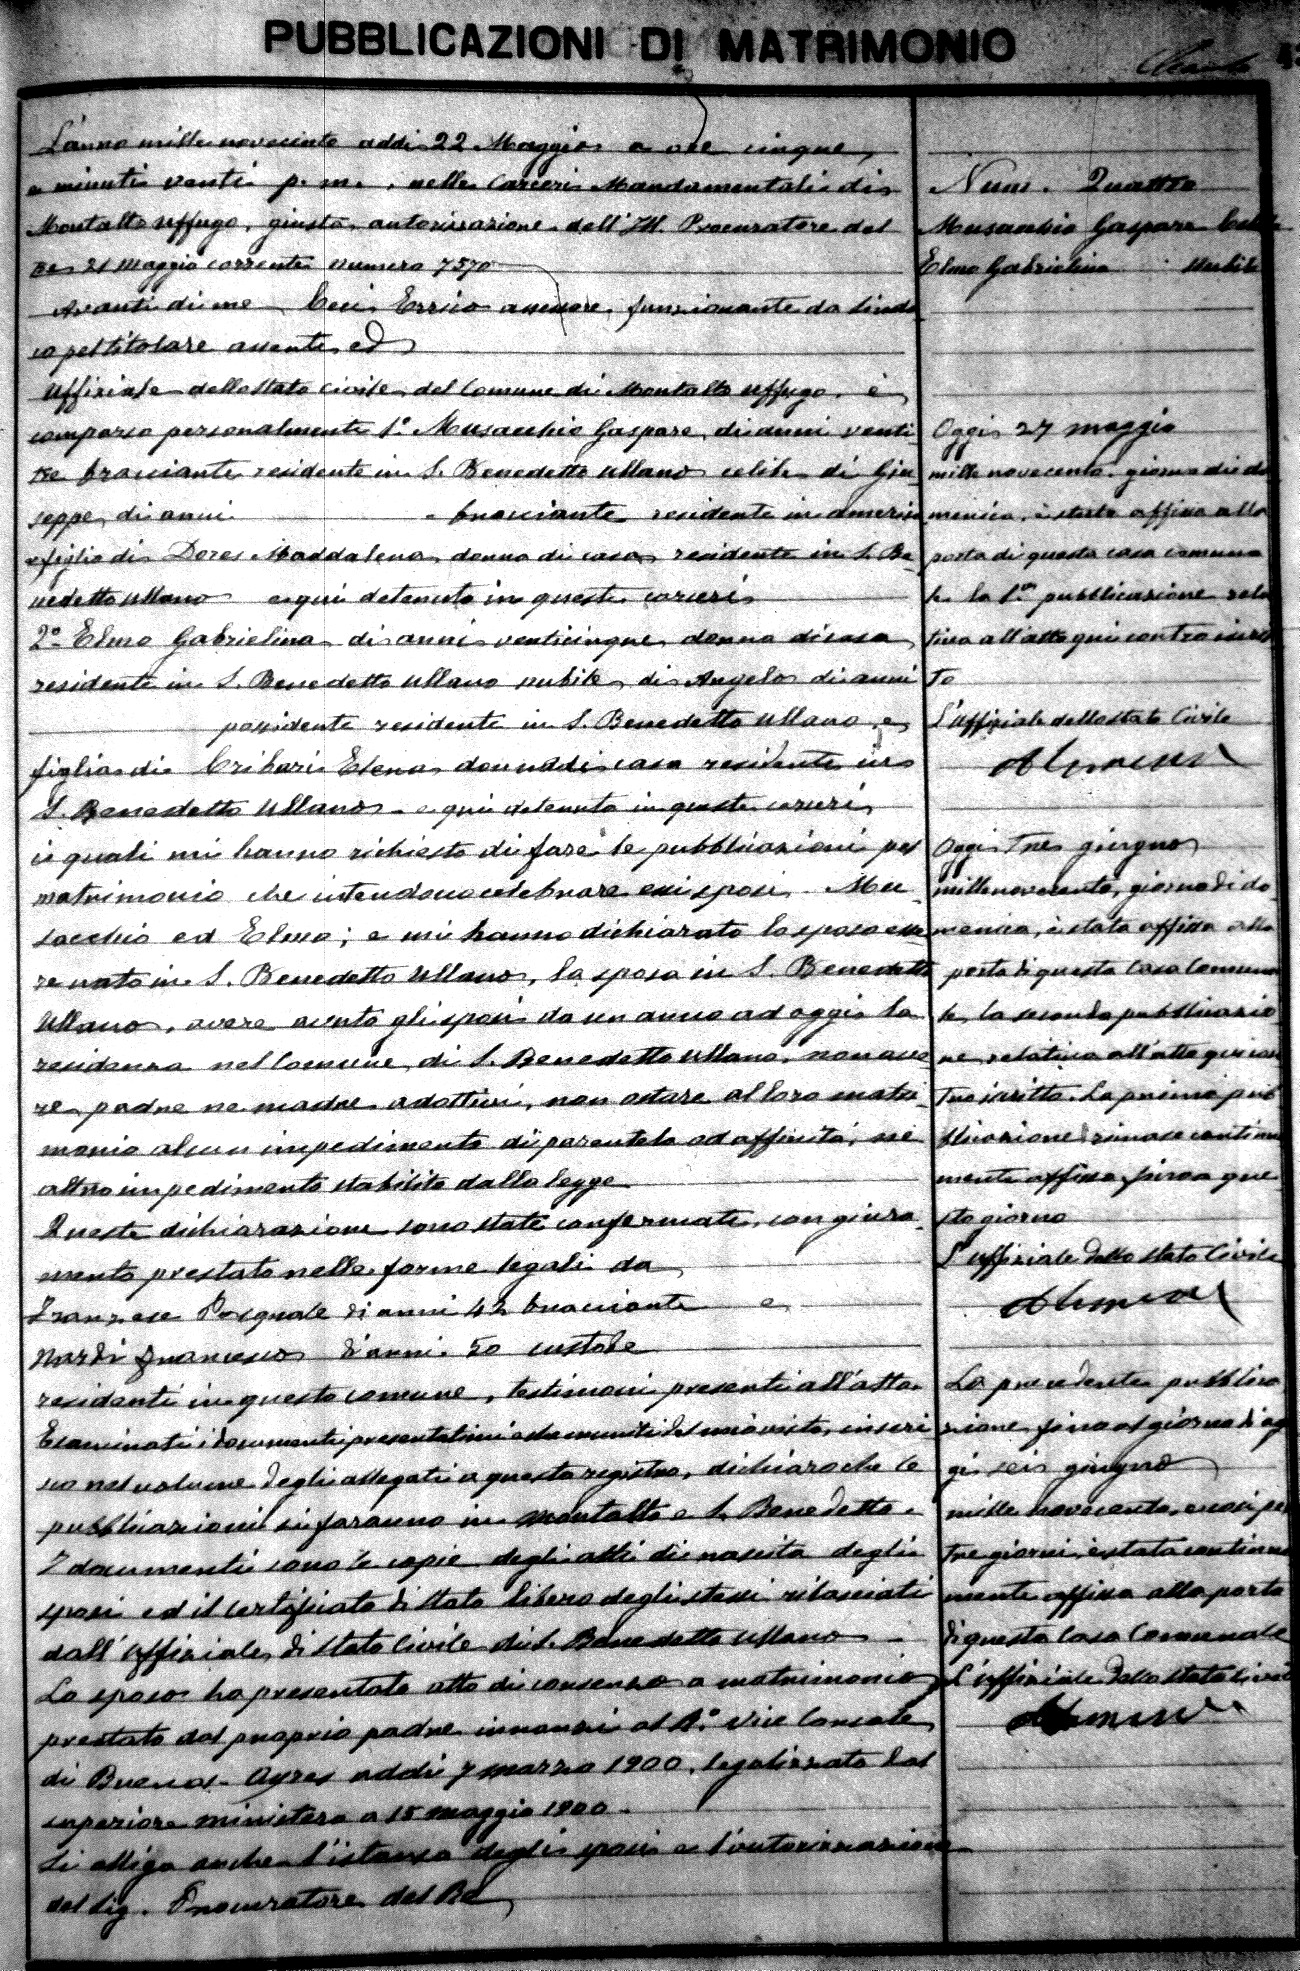 PUBBLICAZIONI DI MATRIMONIO
L'anno mille novecento addi 22 Maggio a ore cinque
e minuti venti p. m., nelle Carceri Mandamentali di
Montalto Uffugo, giusta autorizzazione dell'Ill. Procuratore del
Re 21 Maggio corrente numero 7570
Avanti di me Ceci Errico assessore funzionante da Sinda
co pel titolare assente ed
Uffiziale dello Stato Civile del Comune di Montalto Uffugo, è
comparso personalmente 1.º Musacchio Gaspare, di anni venti
tre bracciante residente in S. Benedetto Ullano celibe di Giu
seppe, di anni bracciante residente in America
e figlio di Dores Maddalena donna di casa residente in S. Be
nedetto Ullano e qui detenuto in queste carceri
2º Elmo Gabrielina di anni venticinque donna di casa
residente in S. Benedetto Ullano nubile di Angelo di anni
possidente residente in S. Benedetto Ullano e
figlia di Cribari Elena donna di casa residente in
S. Benedetto Ullano e qui detenuta in queste carceri
i quali mi hanno richiesto di fare le pubblicazioni pel
matrimonio che intendono celebrare essi sposi Mu
sacchio ed Elmo; e mi hanno dichiarato lo sposo esse
re nato in S. Benedetto Ullano, la sposa in S. Benedetto
Ullano, avere avuto gli sposi da un anno ad oggi la
residenza nel Comune di S. Benedetto Ullano, non ave
re padre ne madre adottivi, non ostare al loro matri
monio alcun impedimento di parentela od affinità, nè
altro impedimento stabilito dalla legge
Queste dichiarazione sono state confermate con giura
mento prestato nelle forme legali da
Franzese Pasquale di anni 42 bracciante e
Nardi Francesco d'anni 50 custode
residenti in questo comune, testimoni presenti all'atto
Esaminati i documenti presentatimi e da muniti del mio visto, inseri
sco nel volume degli allegati a questo registro, dichiaro che le
pubblicazioni si faranno in Montalto e S. Benedetto.
I documenti sono le copie degli atti di nascita degli
sposi ed il certificato di stato libero degli stessi rilasciati
dall'Uffiziale di Stato Civile di S. Benedetto Ullano
Lo sposo ha presentato atto di consenso a matrimonio
prestato dal proprio padre innanzi al R.º Vice Console
di Buenos-Ayres addi 7 marzo 1900, legalizzato dal
superiore ministero a 15 maggio 1900.
Si alliga anche l'istanza degli sposi e l'autorizzazione
del Sig. Procuratore del Re
Num. Quattro
Musacchio Gaspare Celibe
Elmo Gabrielina Nubile
Oggi 27 maggio
mille novecento giorno di do
menica, è stata affissa alla
porta di questa casa comuna
le la 1.ª pubblicazione rela
tiva all'atto qui contro iscrit
to
L'Uffiziale dello Stato Civile
Oggi Tre giugno
mille novecento, giorno di do
menica, è stata affissa alla
porta di questa Casa Comuna
le la seconda pubblicazio
ne relativa all'atto qui con
tro iscritto. La prima pub
blicazione rimase continua
mente affissa fino a que
sto giorno
L'uffiziale dello Stato Civile
La precedente pubblica
zione, fino al giorno di og
gi sei giugno
mille novecento, e così per
tre giorni, è stata continua
mente affissa alla porta
di questa Casa Comunale
L'uffiziale dello Stato Civile